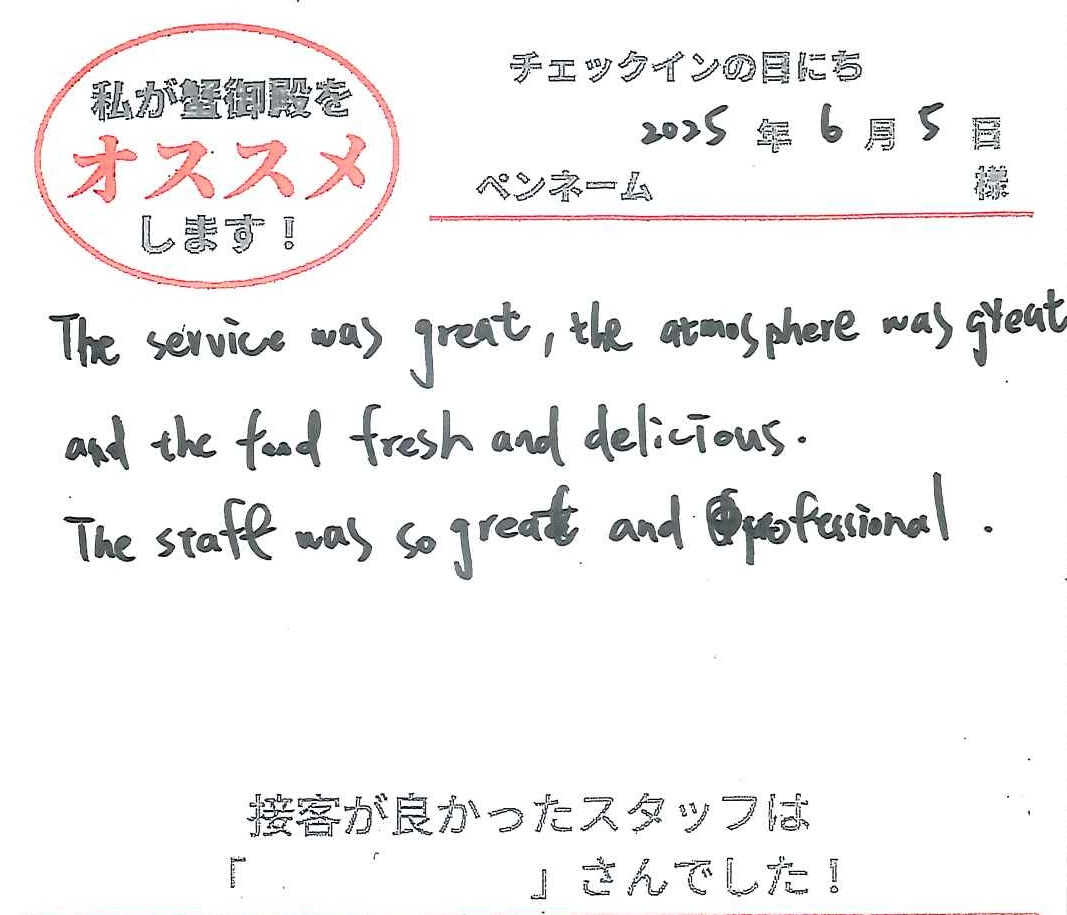 私が蟹御殿を
オススメ
します！
チェックインの日にち
2025 年 6 月 5 日
ペンネーム 様
The service was great, the atmosphere was great
and the food fresh and delicious.
The staff was so great and professional.
接客が良かったスタッフは
「 」さんでした！